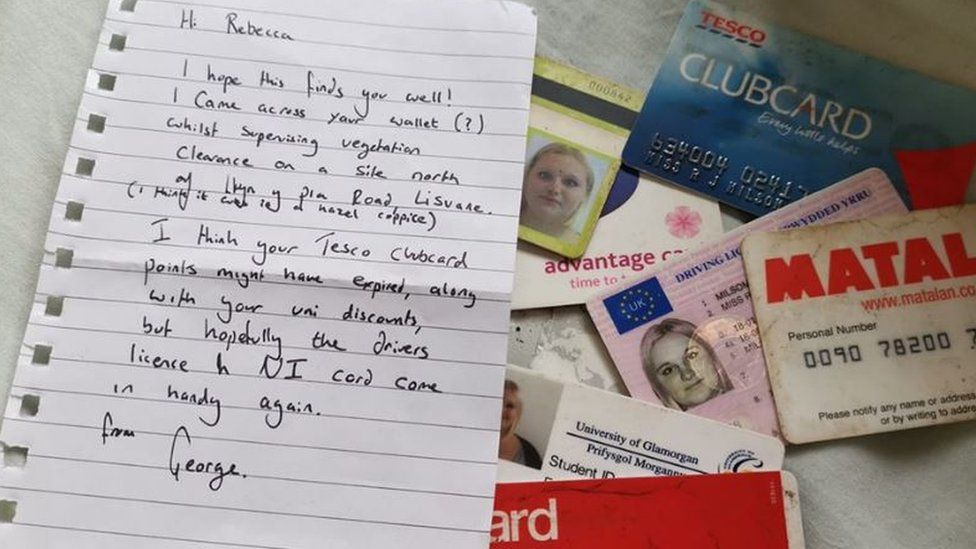 Hi Rebecca
I hope this finds you well!
I came across your wallet (?)
whilst supervising vegetation
clearance on a site north
of Llwyn y Pia Road, Lisvane.
(I think it was in a hazel coppice)
I think your Tesco Clubcard
points might have expired, along
with your uni discounts,
but hopefully the drivers
licence & NI card come
in handy again.
from
George.
000842
TESCO
CLUBCARD
Every little helps
634004 02417
MISS R J MILSON
advantage car
time to
DRIVING LIC
RWYDDED YRRU
UK
1. MILSO
2. MISS R
3. 18-0
MATAL
www.matalan.co
Personal Number
0090 78200 7
Please notify any name or address
or by writing to addre
University of Glamorgan
Prifysgol Morgannw
Student ID
ard